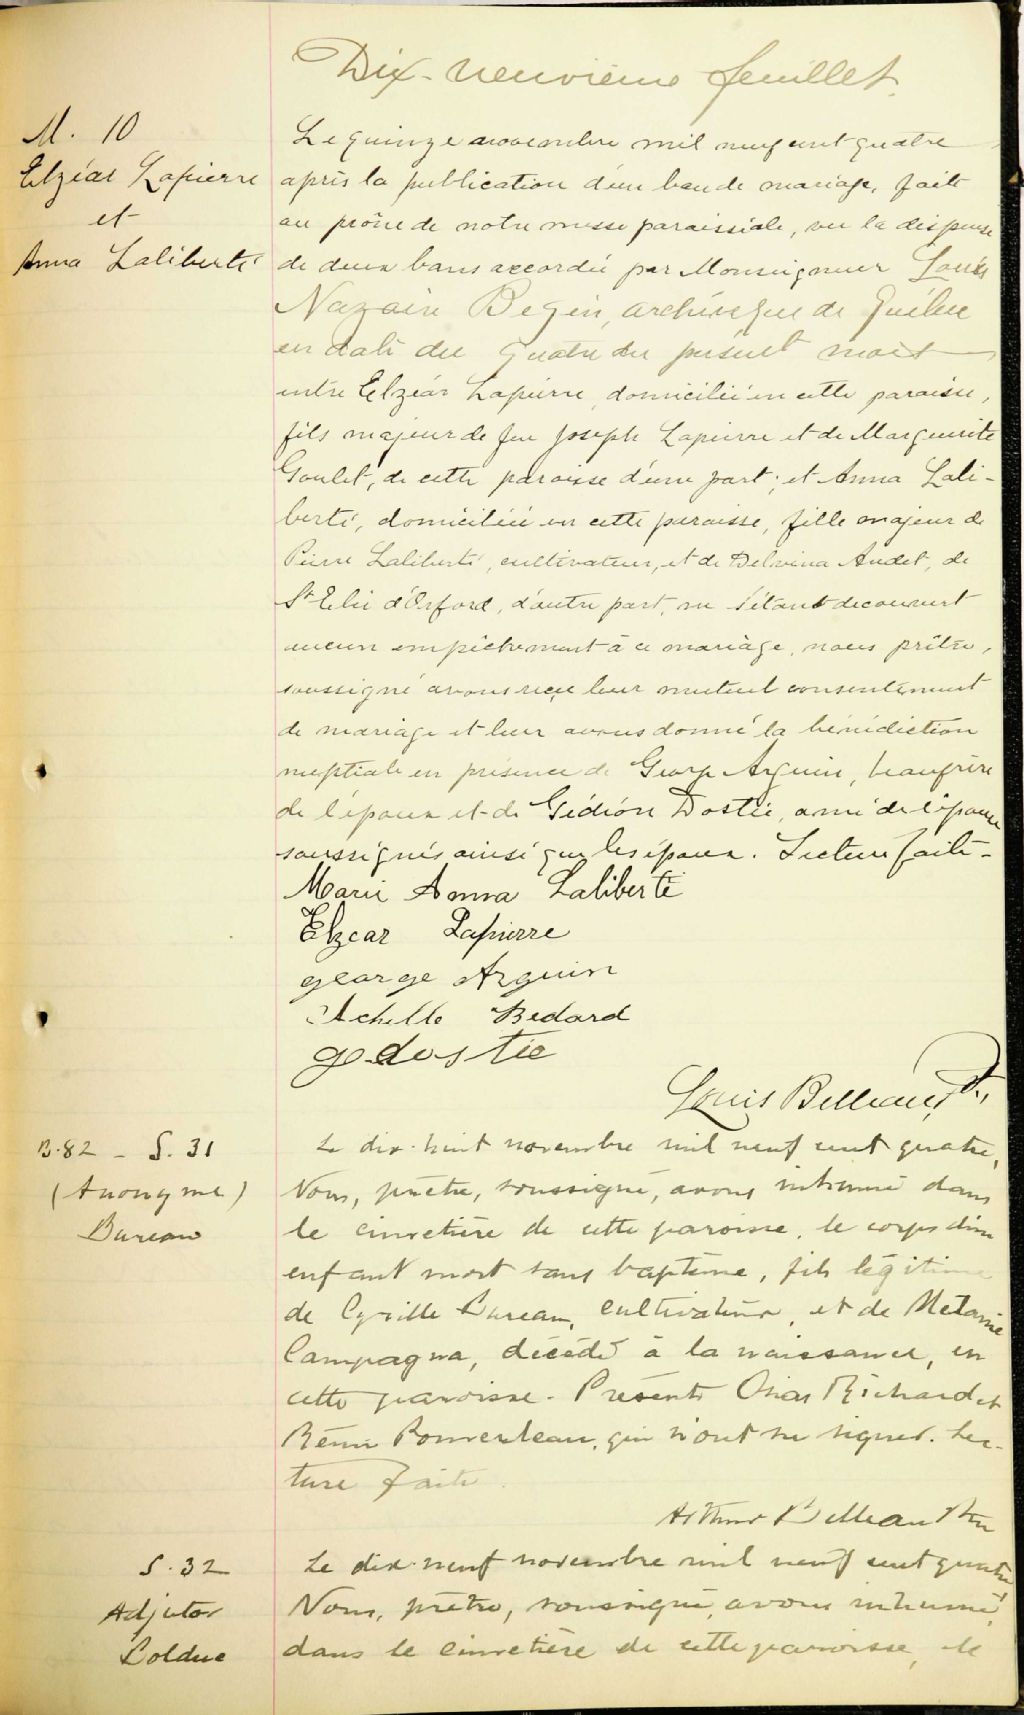 Dix-neuvième feuillet.
M. 10
Elzéar Lapierre
et
Anna Laliberté
Le quinze novembre mil neuf cent quatre
après la publication d'un ban de mariage, faite
au prône de notre messe paroissiale, vu la dispense
de deux bans accordée par Monseigneur Louis
Nazaire Begin, archevêque de Québec
en date du quatre du présent mois
entre Elzéar Lapierre, domicilié en cette paroisse,
fils majeur de feu Joseph Lapierre et de Marguerite
Goulet, de cette paroisse d'une part; et Anna Lali-
berté, domiciliée en cette paroisse, fille majeur de
Pierre Laliberté, cultivateur, et de Delvina Audet, de
St Elie d'Orford, d'autre part, ne s'étant decouvert
aucun empêchement à ce mariage, nous prêtre,
soussigné avons reçu leur mutuel consentement
de mariage et leur avons donné la bénédiction
nuptiale en présence de George Arguin, beaufrère
de l'époux et de Gédéon Dostie, ami de l'époux
soussignés ainsi que les époux. Lecture faite-
Marie Anna Laliberté
Elzear Lapierre
george Arguin
Achille Bedard
g dostie
Louis Belleau, Pt.,
B.82 - S. 31
(Anonyme)
Bureau
Le dix-huit novembre mil neuf cent quatre,
Nous, prêtre, soussigné, avons inhumé dans
le cimetière de cette paroisse, le corps d'un
enfant mort sans baptême, fils légitime
de Cyrille Bureau, cultivateur, et de Mélanie
Campagna, décédé à la naissance, en
cette paroisse. Présents Richard et
Rémi Pomerleau, qui n'ont su signer. Lec-
ture faite
Arthur Belleau Ptre
S. 32
Adjutor
Bolduc
Le dix-neuf novembre mil neuf cent quatre,
Nous, prêtre, soussigné, avons inhumé,
dans le cimetière de cette paroisse, le